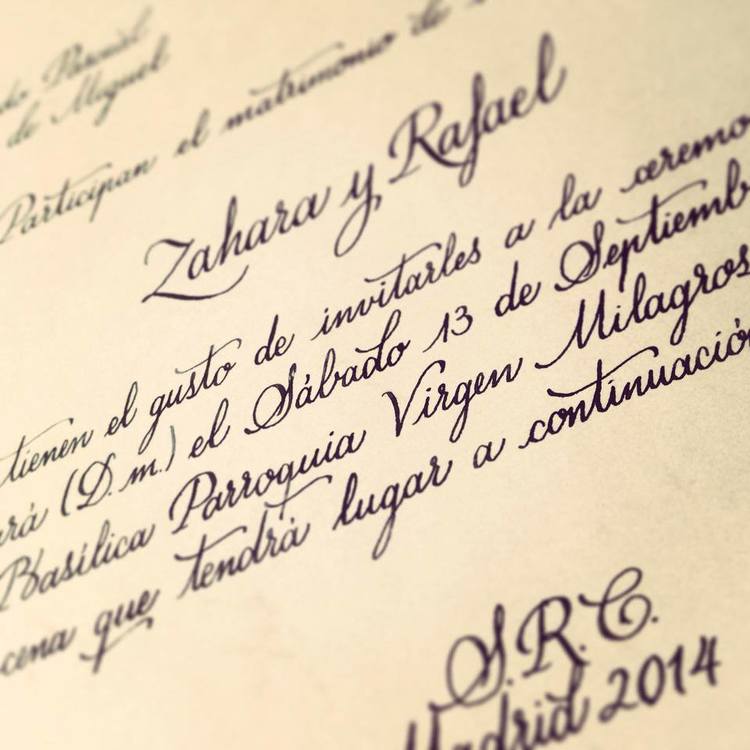 Pascual
de Miguel
Participan el matrimonio de
Zahara y Rafael
tienen el gusto de invitarles a la ceremo
rá (D.m.) el Sábado 13 de Septiemb
Basílica Parroquia Virgen Milagros
cena que tendrá lugar a continuació
S.R.C.
Madrid 2014